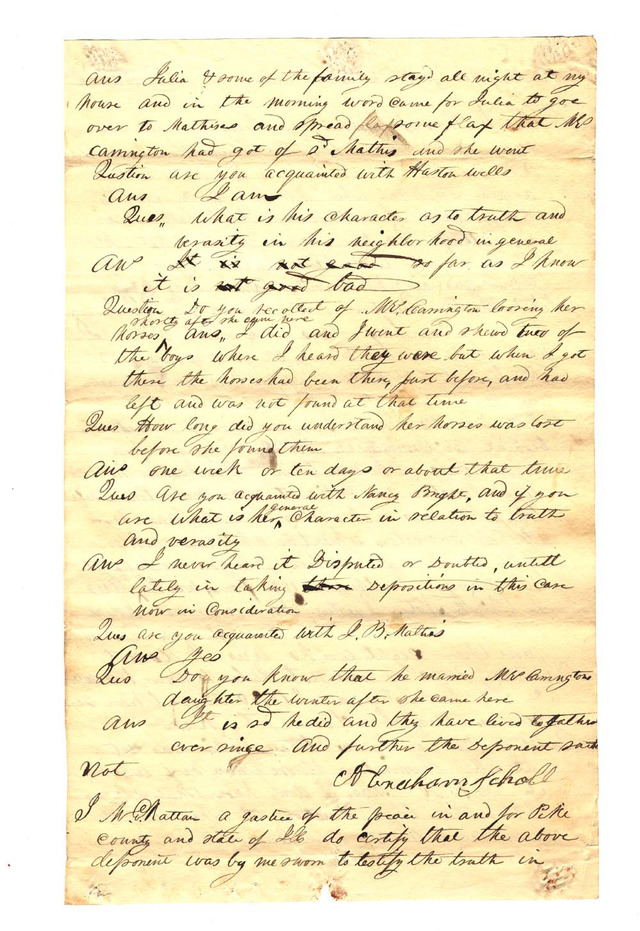 Ans Julia & some of the family stayd all night at my
house and in the morning word came for Julia to goe
over to Mathises and spread some flax that Mrs
Carrington had got of sd Mathis and she went
Qustion are you acquainted with Haston wells
Ans I am
Ques,, what is his character as to truth and
verasity in his neighborhood in general
Ans It is not good so far as I know
it is not good bad
Question Do you recollect of Mrs. Carrington loosing her
shortly after she came here
horses Ans,, I did and I went and shewd two of
the boys where I heard they were but when I got
there the horses had been there, just before, and had
left and was not found at that time
Ques How long did you understand her horses was lost
before she found them
Ans one week or ten days or about that time
Ques Are you acquainted with Nancy Bright, and if you
are what is her general Character in relation to truth
and verasity
Ans I never heard it Disputed or Doubted, untill
lately in taking Depositions in this Case
now in Consideration
Ques are you acquainted with J. B. Mathis
Ans Yes
Ques Do you know that he married Mrs Carringtons
daughter the winter after she came here
Ans It is sd he did and they have lived together
ever singe And further the Deponent saith
Not
Abraham Scholl
I Wm. Mattan a gustice of the peace in and for Pike
county and state of Ill do certify that the above
deponent was by me sworn to testify the truth in